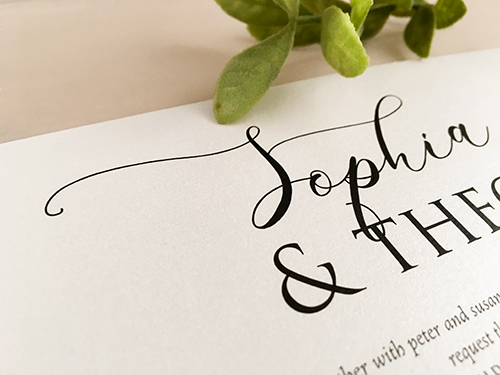 Sophia
& THEO
ther with peter and susan
request th